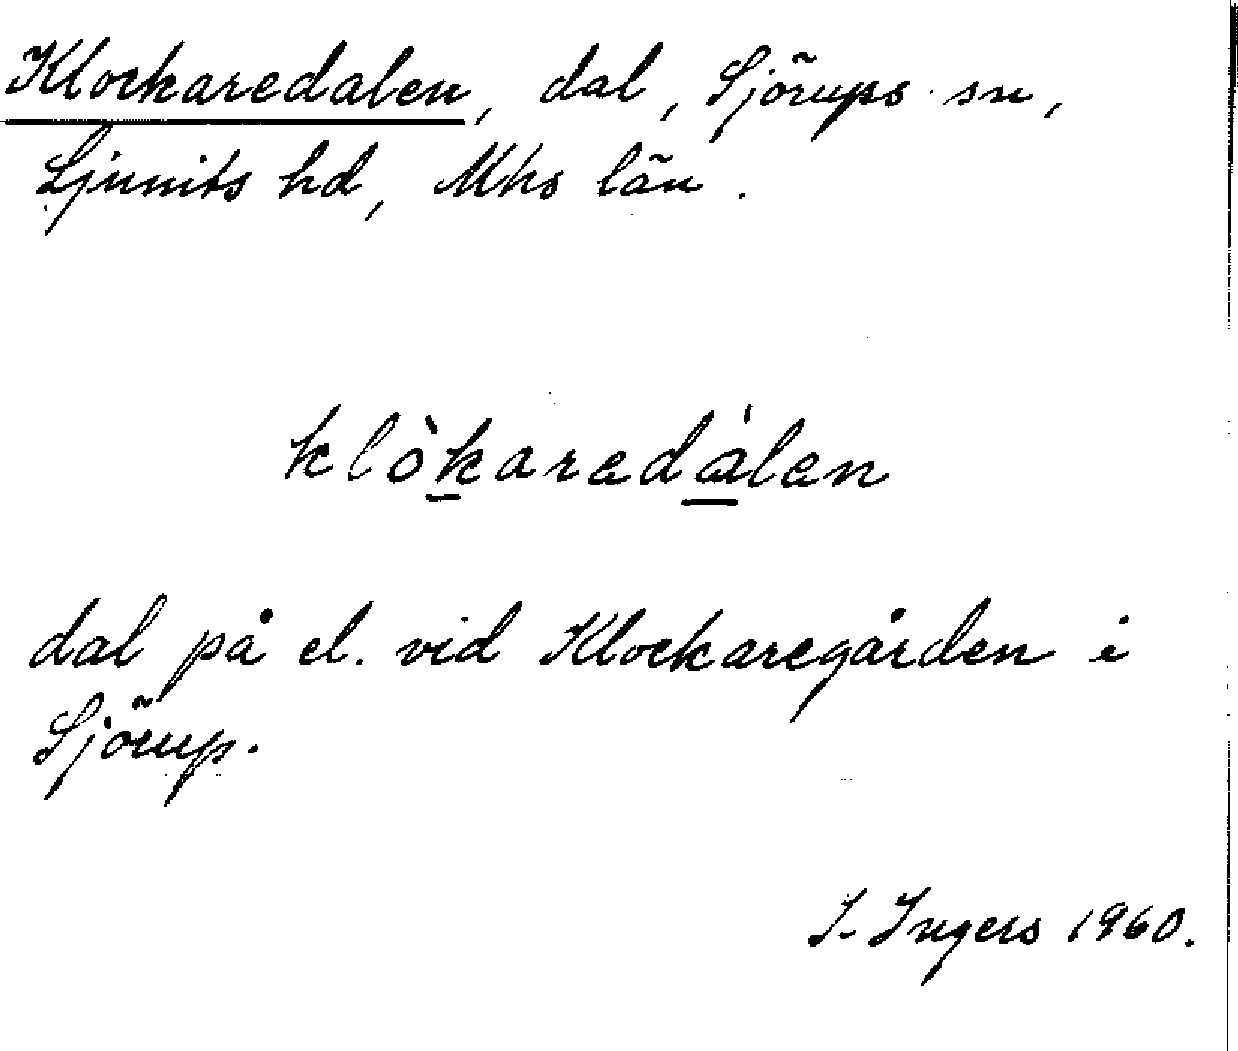 Klockaredalen, dal, Sjörups sn,
Ljunits hd, Mhs län.
klòkaredálen
dal på el. vid Klockaregården i
Sjörup.
I. Ingers 1960.